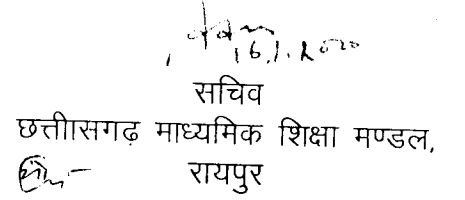 16.1.2020
सचिव
छत्तीासगढ़ माध्यमिक शिक्षा मण्डल,
रायपुर